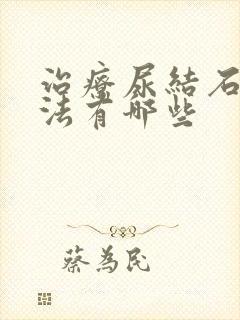 治療尿結石
法有哪些
蔡為民